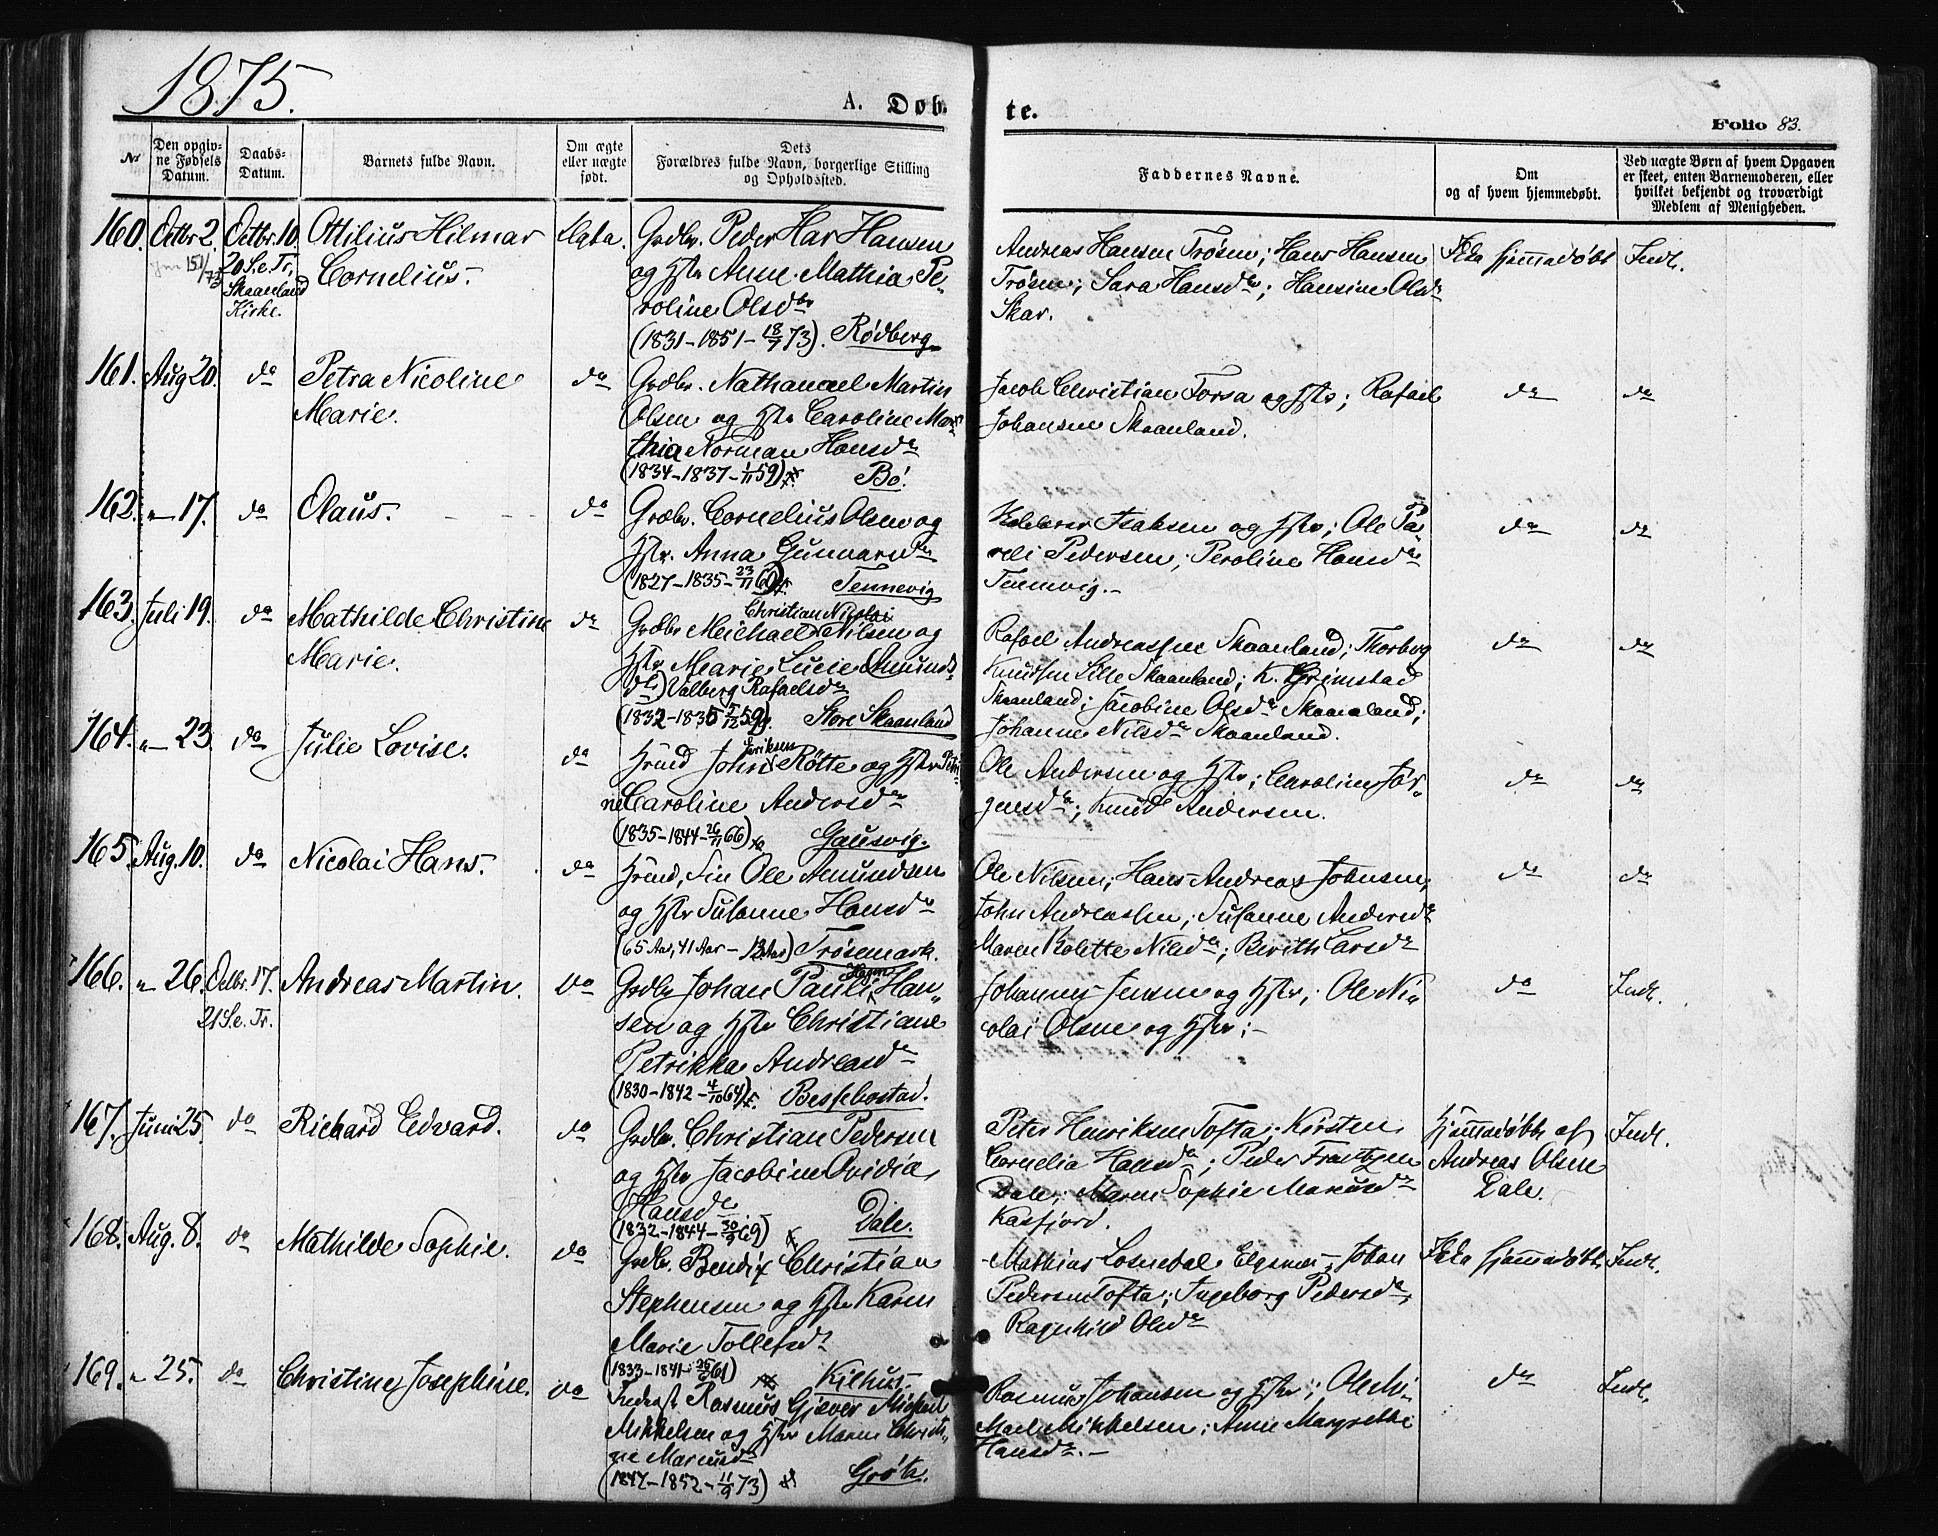 1875.
A. Døb-
te.
Folio 83.
Nr
Den opgiv-
ne Fødsels
Datum.
Daabs-
Datum.
Barnets fulde Navn.
Om ægte
eller uægte
født.
Dets
Forældres fulde Navn, borgerlige Stilling
og Opholdssted.
Faddernes Navne.
Om
og af hvem hjemmedøbt.
Ved uægte Børn af hvem Opgaven
er skeet, enten Barnemoderen, eller
hvilket bekjendt og troværdigt
Medlem af Menigheden.
160. Octbr 2. Octbr. 10. Ottilius Hilmar
20 S. e. Tr. Cornelius.
Skaanland
Kirke.
Ægte.
Grdbr. Peder Har Hansen
og Hstr Anne Mathia Pe-
roline Olsdtr
(1831-1851-18/7 73). Rødberg
Andreas Hansen Trøsen; Hans Hansen
Trøsen; Sara Hansdtr; Hansine Olsdtr
Skar.
Ikke hjemmedøbt
Indl.
161. Aug 20. do Petra Nicoline
Marie.
do
Grdbr. Nathanael Martin
Olsen og Hstr Caroline Mar-
thia Norman Hansdtr
(1834-1837-1/11 59) Bø.
Jacob Christian Forsa og Hstr; Rafael
Johansen Skaanland.
do
do
162. " 17. do Olaus.
do
Grdbr. Cornelius Olsen og
Hstr. Anna Gunnarsdtr
(1827-1835-23/11 60) Tennevig
Isaksen og Hstr; Ole Pa-
reli Pedersen; Peroline Hansdtr
Tennevig.-
do
do
163. Juli 19. do Mathilde Christine
Marie.
do
Christian Nicolai
Grdbr Meichael Nilsen og
Hstr Marie Lucie (Amunds-
dtr) Valberg Rafaelsdtr
(1832-1835 59) Store Skaanland
Rafael Andreassen Skaanland; Thorberg
Knudsen Lille Skaanland; K. Grimstad
Skaanland; Jacobine Olsdtr Skaanland;
Johanne Nilsdtr Skaanland.
do
do
164. " 23. do Julie Lovise.
do
Eriksen
Hrmd John Røtte og Hstr Petri-
ne Caroline Andersdtr
(1835-1844-26/11 66) Gausvig.
Ole Andersen og Hstr; Caroline Jør-
gensdtr; Knud Andersen.
do
do
165. Aug. 10. do Nicolai Hans.
do
Hrmd, Fin Ole Amundsen
og Hstr Susanne Hansdtr
(65 Aar, 41 Aar - 13 Aar) Trøsemark.
Ole Nilsen; Hans Andreas Johnsen,
John Andreassen; Susanne Andersdtr
Maren Kolette Nilsdtr; Berith Larsdtr
do
do
166. " 26. Octbr. 17. Andreas Martin.
21 S. e. Tr.
do
Hagen
Grdbr Johan Pauli Han-
sen og Hstr Christiane
Petrikka Andreasdtr
(1830-1842-4/10 64) Bessebostad.
Johannes Jensen og Hstr; Ole Ni-
colai Olsen og Hstr;-
do
Indl.
167. Juni 25. do Richard Edvard.
do
Grdbr. Christian Pedersen
og Hstr Jacobine Ovidia
Hansdtr
(1832-1844-30/9 69) Dale.
Peter Henriksen Tofta; Kirsten
Cornelia Hansdtr; Peder Frantzen
Dale; Maren Sophie Mariusdtr
Kasfjord.
Hjemmedøbt af
Andreas Olsen
Dale.
Indl.
168. Aug. 8. do Mathilde Sophie.
do
Grdbr. Bendix Christian
Stephensen og Hstr Karen
Marie Tollefsdtr
(1833-1841 61) Kilhus
Mathias Losnedal Elgsnes; Johan
Pedersen Tofta; Ingeborg Pedersdtr,
Ragnhild Olsdtr
Ikke hjemmedøbt
Indl.
169. " 25. do Christine Josephine.
do
Inderst Rasmus Giæver Michael
Mikkelsen og Hstr Maren Christi-
ne Mariusdtr
(1847-1852-11/9 73) Grøta.
Rasmus Johansen og Hstr; Ole Mi-
Mikkelsen; Anne Margrethe
Hansdtr.-
do
Indl.